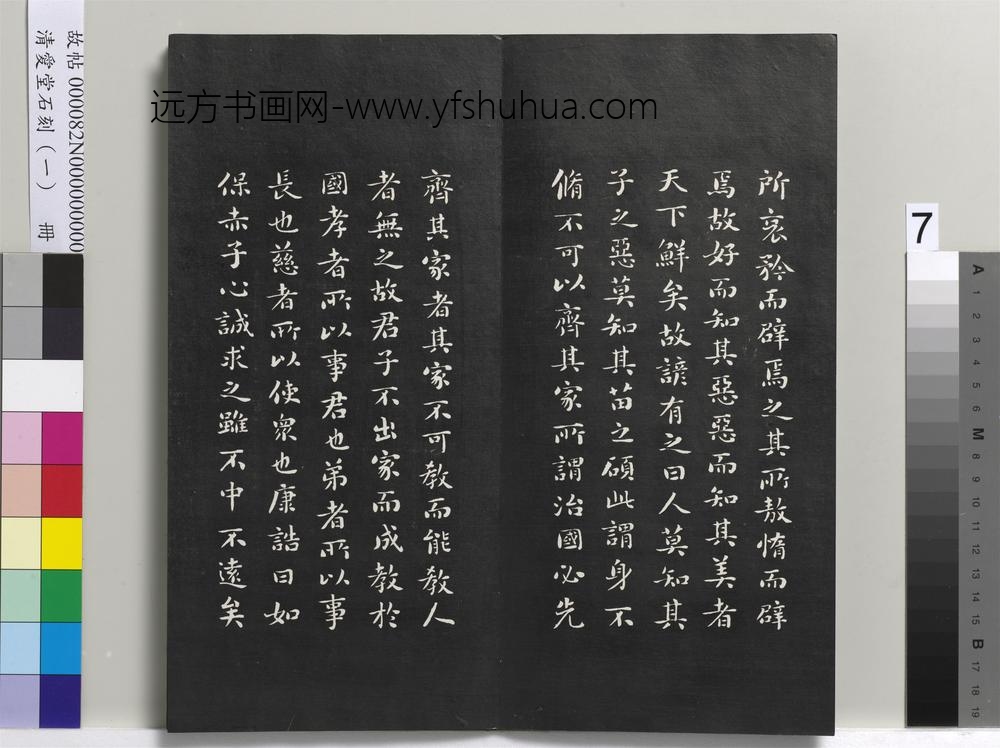 所哀矜而辟焉之其所敖惰而辟
焉故好而知其惡惡而知其美者
天下鮮矣故諺有之曰人莫知其
子之惡莫知其苗之碩此謂身不
脩不可以齊其家所謂治國必先
齊其家者其家不可教而能教人
者無之故君子不出家而成教於
國孝者所以事君也弟者所以事
長也慈者所以使眾也康誥曰如
保赤子心誠求之雖不中不遠矣
远方书画网-www.yfshuhua.com
故帖 000082N000000000
清愛堂石刻（一） 冊
7
A
1
2
3
4
5
6
M
8
9
10
11
12
13
14
15
B
17
18
19